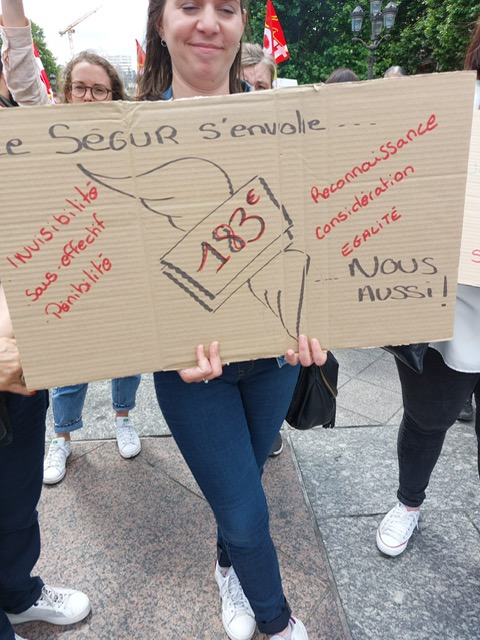 Le SÉGUR s'envole ...
INVISIBILITÉ
Sous-effectif
Pénibilité
183€
Reconnaissance
Considération
EGALITÉ
... NOUS
AUSSI !